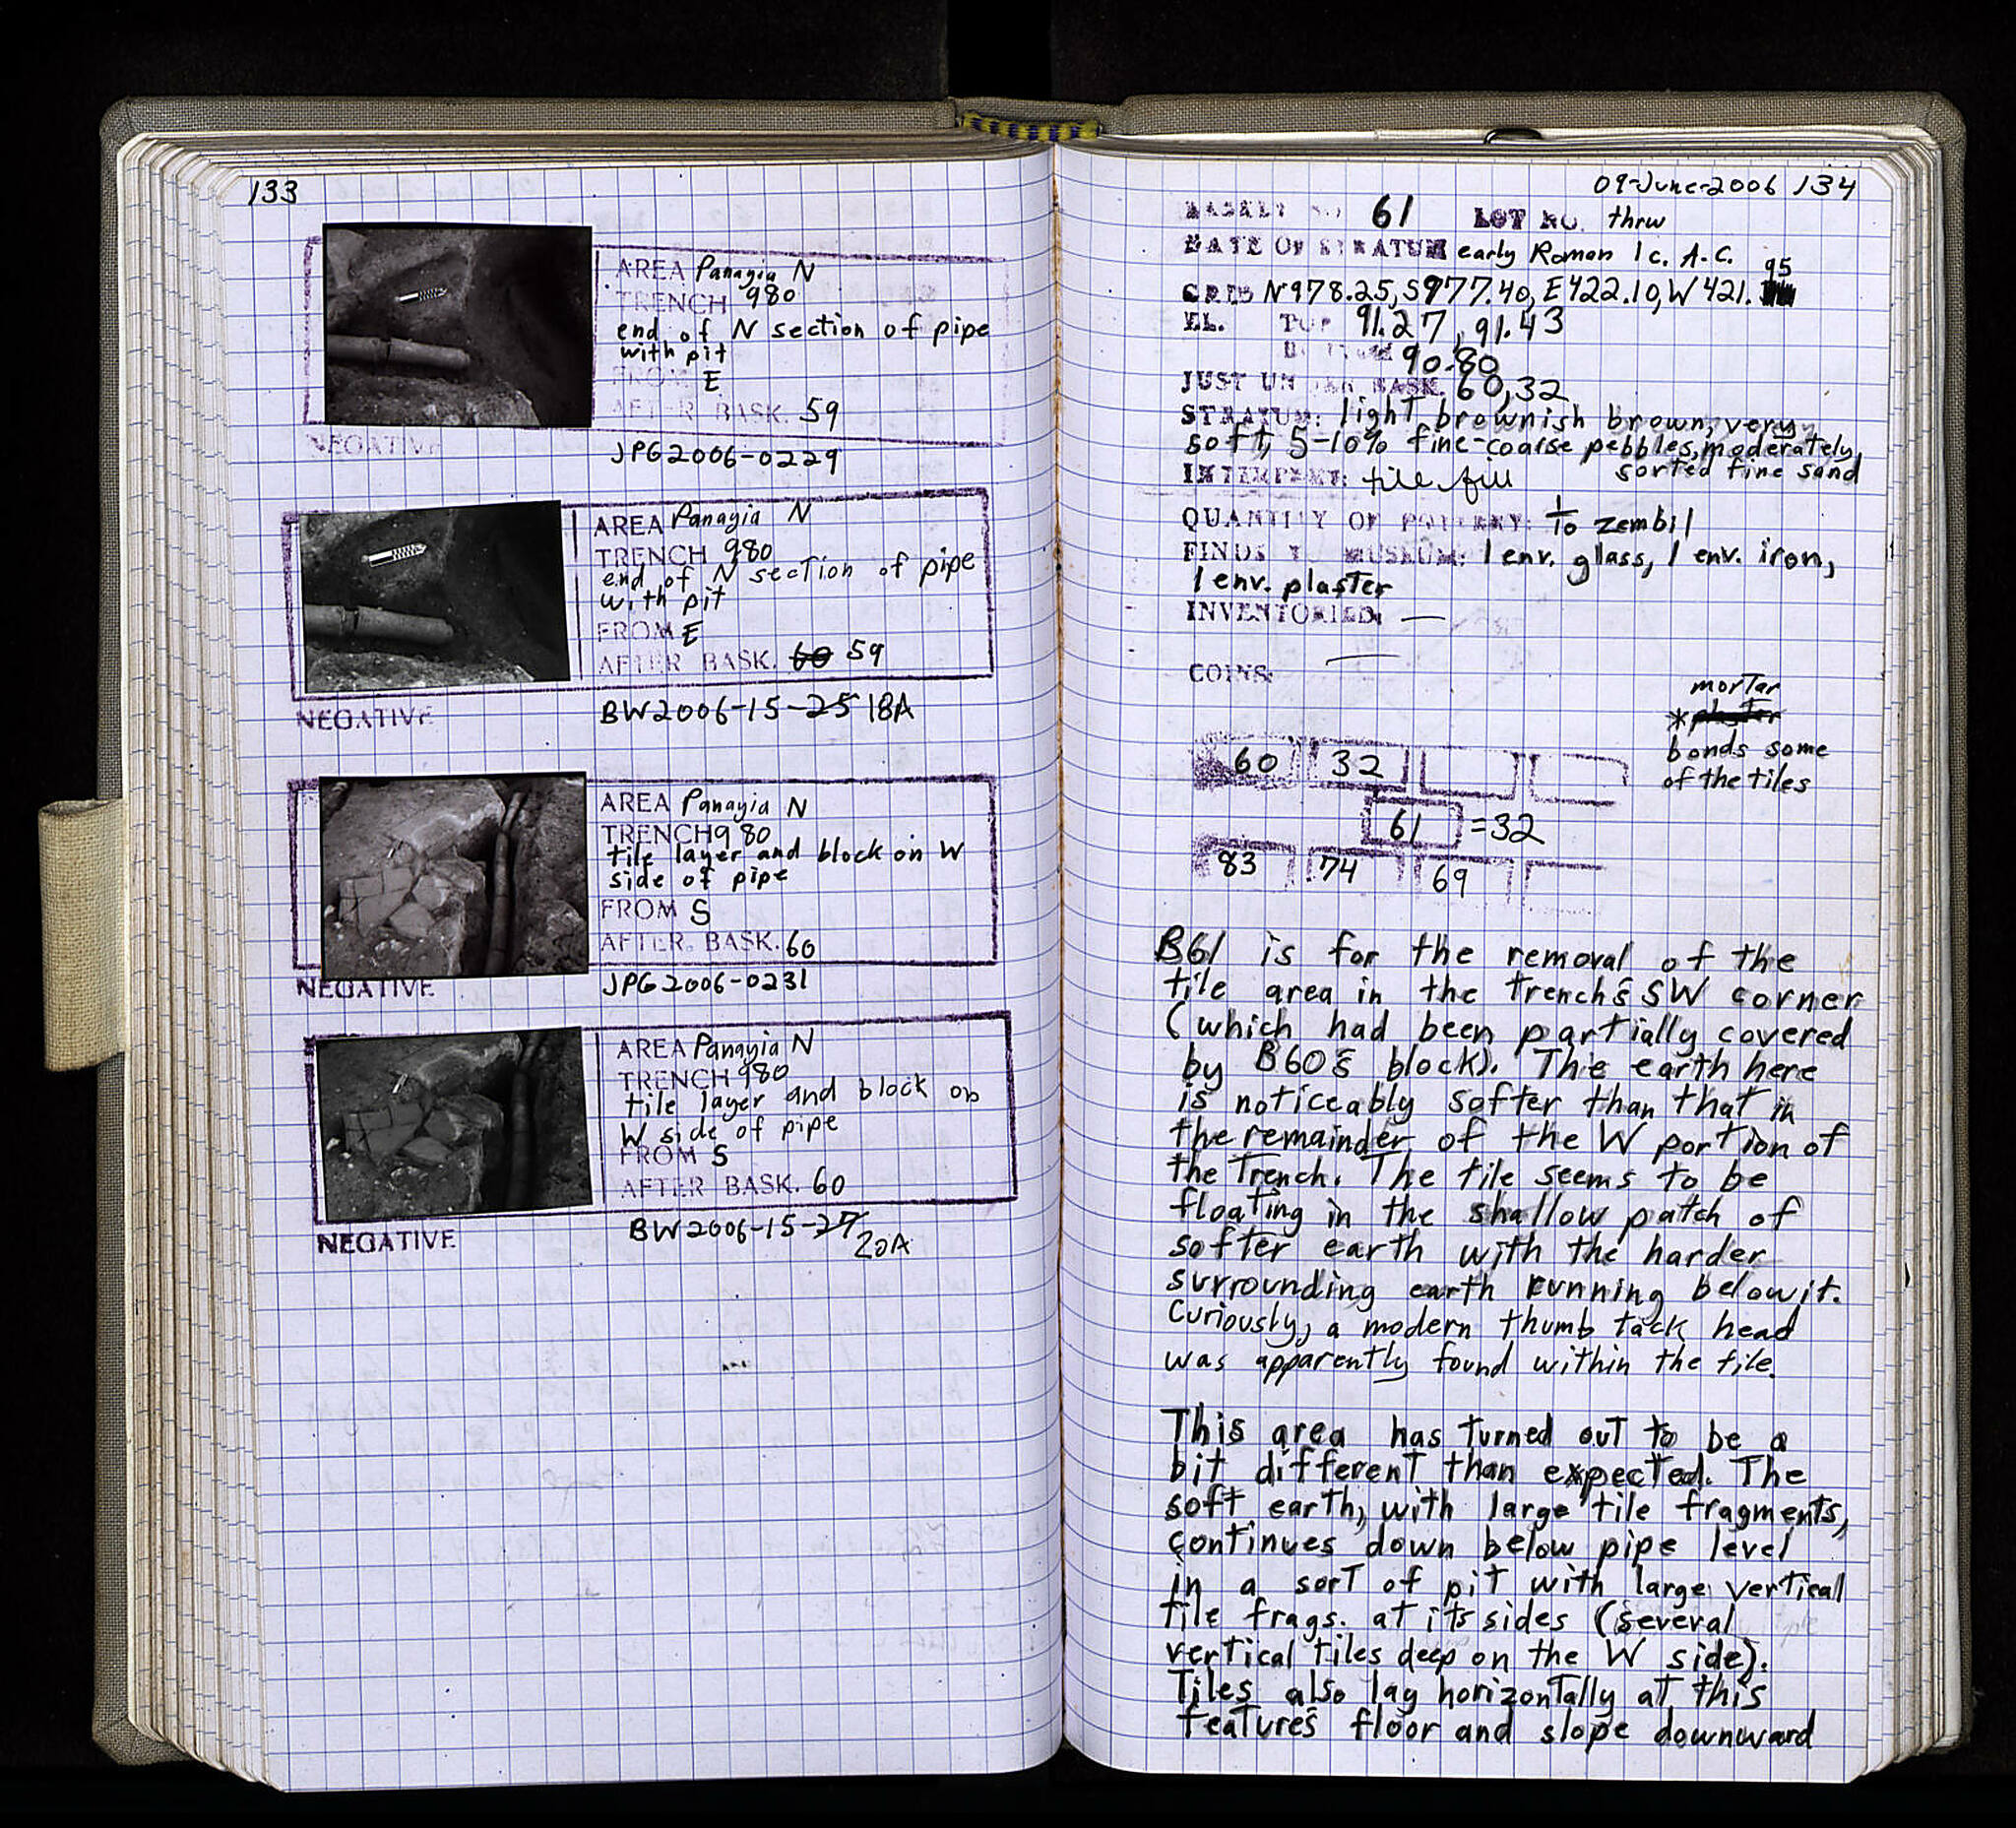 133
AREA Panagia N
TRENCH 980
end of N section of pipe
with pit
FROM E
AFTER BASK. 59
NEGATIVE
JPG2006-0229
AREA Panagia N
TRENCH 980
end of N section of pipe
with pit
FROM E
AFTER BASK. 60 59
NEGATIVE
BW2006-15-25 18A
AREA Panagia N
TRENCH 980
tile layer and block on W
side of pipe
FROM S
AFTER BASK. 60
NEGATIVE
JPG2006-0231
AREA Panagia N
TRENCH 980
tile layer and block on
W side of pipe
FROM S
AFTER BASK. 60
NEGATIVE
BW2006-15-27
20A
09-June-2006 134
BASKET NO 61 LOT NO. thrw
DATE OF STRATUM early Roman 1 c. A.C.
95
GRID N978.25, S977.40, E422.10, W421.
EL. TOP 91.27, 91.43
BOTTOM 90.80
JUST UNDER BASK. 60, 32
STRATUM: light brownish brown, very
soft, 5-10% fine-coarse pebbles, moderately
sorted fine sand
INTERPRET: tile fill
QUANTITY OF POTTERY: 1/10 zembil
FINDS MUSEUM: 1 env. glass, 1 env. iron,
1 env. plaster
INVENTORIED: —
COINS: —
mortar
*plaster
bonds some
of the tiles
60 32
61 =32
83 74 69
B61 is for the removal of the
tile area in the trench's SW corner
(which had been partially covered
by B60's block). The earth here
is noticeably softer than that in
the remainder of the W portion of
the trench. The tile seems to be
floating in the shallow patch of
softer earth with the harder
surrounding earth running below it.
Curiously, a modern thumb tack head
was apparently found within the tile.
This area has turned out to be a
bit different than expected. The
soft earth, with large tile fragments,
continues down below pipe level
in a sort of pit with large vertical
tile frags. at its sides (several
vertical tiles deep on the W side).
Tiles also lay horizontally at this
feature's floor and slope downward